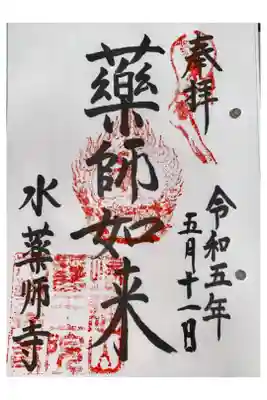 奉拝
令和五年
五月十一日
藥師如来
水薬師寺